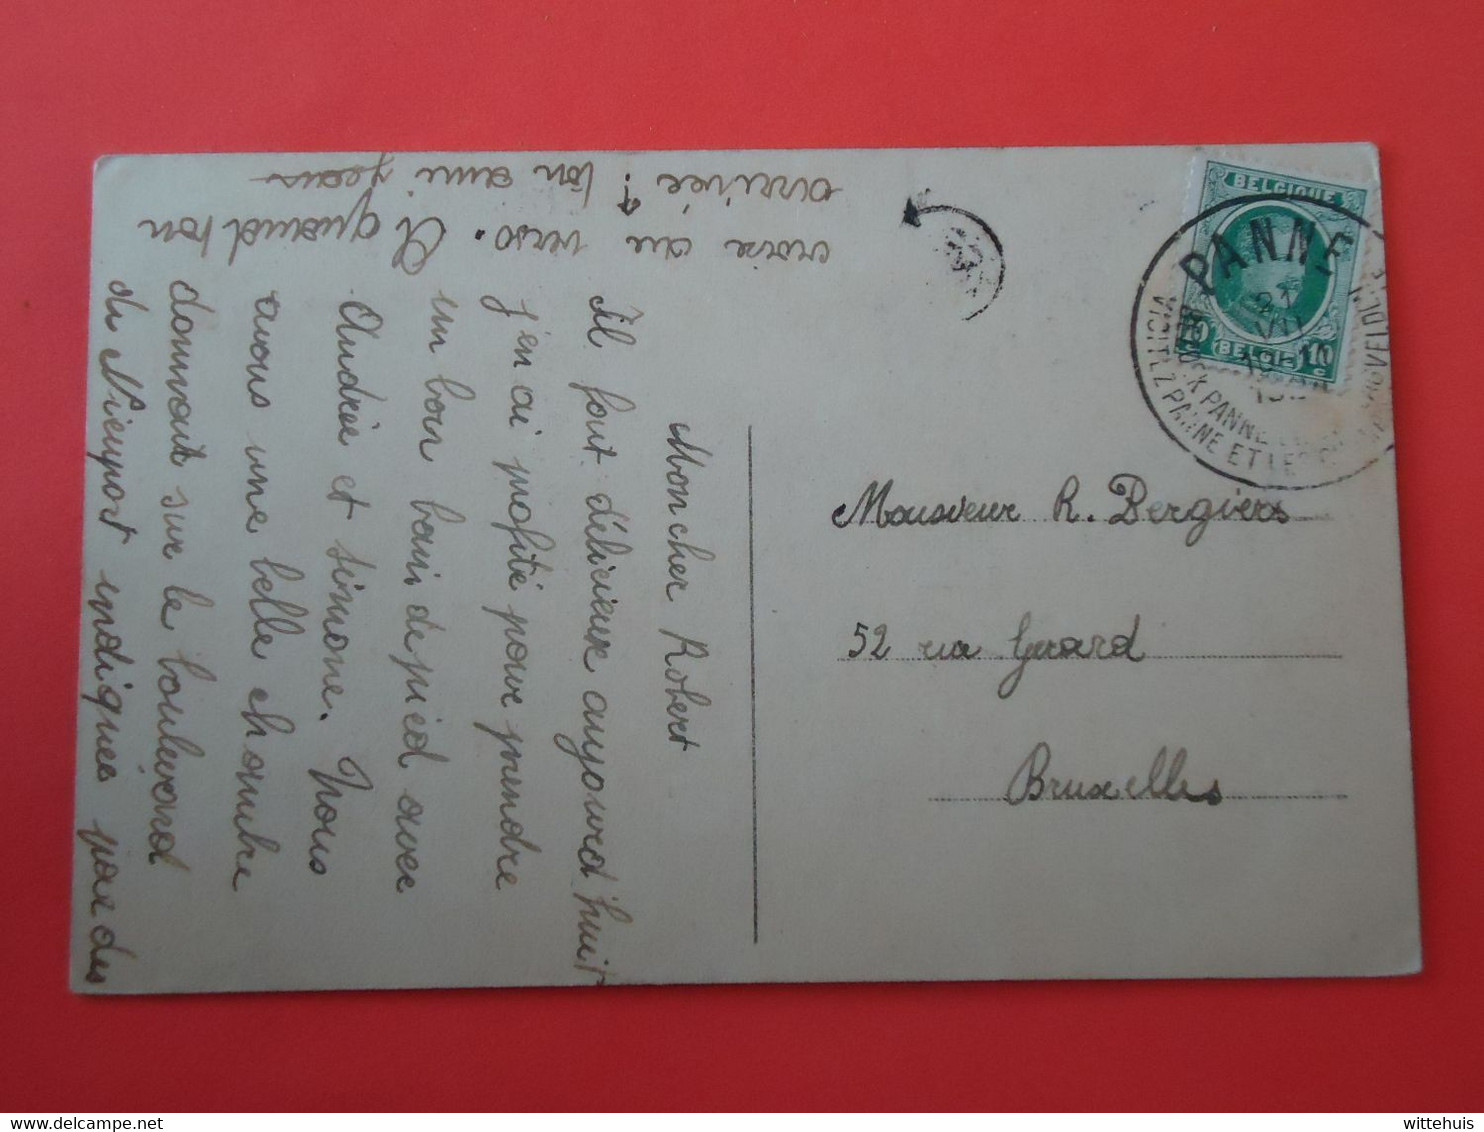 Moncher Robert
Il fout délicieux aujourd'huit
j'en ai profité pour prendre
un bon bain de pied avec
Andrée et Simone. Nous
avons une belle chambre
donnant sur le boulevard
de Nieuport indiquée par des
croix au verso. A quand ton
arrivée? Ton ami Jean
Monsieur R. Bergiers
52 rue Gerard
Bruxelles
BELGIQUE
10
BELGIE
10
c
PANNE
21
VII
VISITEZ PANNE ET LES
PANNE
wittehuis